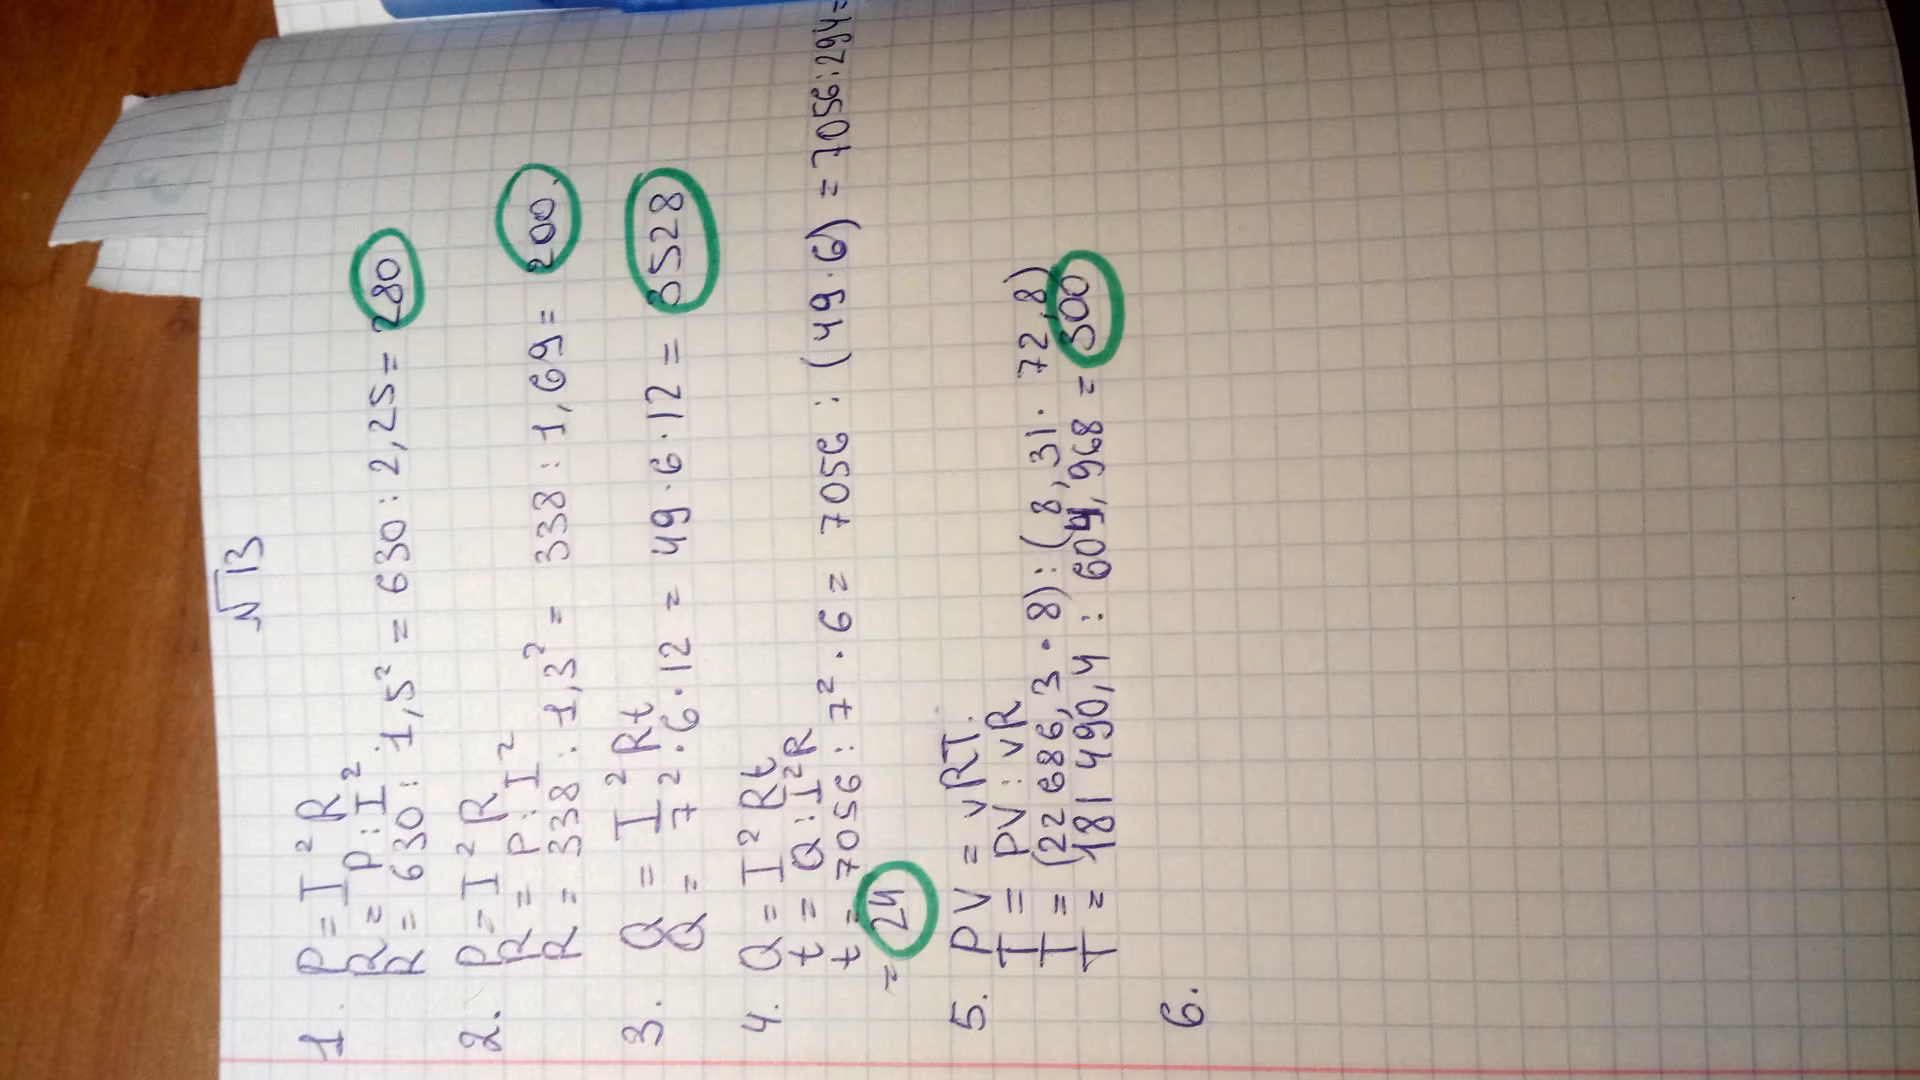 √13
1. P = I²R
R = P : I²
R = 630 : 1,5² = 630 : 2,25 = 280
2. P = I²R
R = P : I²
R = 338 : 1,3² = 338 : 1,69 = 200.
3. Q = I²Rt
Q = 7² · 6 · 12 = 49 · 6 · 12 = 3528
4. Q = I²Rt
t = Q : I²R
t = 7056 : 7² · 6 = 7056 : (49 · 6) = 7056 : 294 =
= 24
5. PV = νRT.
T = PV : νR
T = (22 686,3 · 8) : (8,31 · 72,8)
T = 181 490,4 : 604,968 = 300
6.